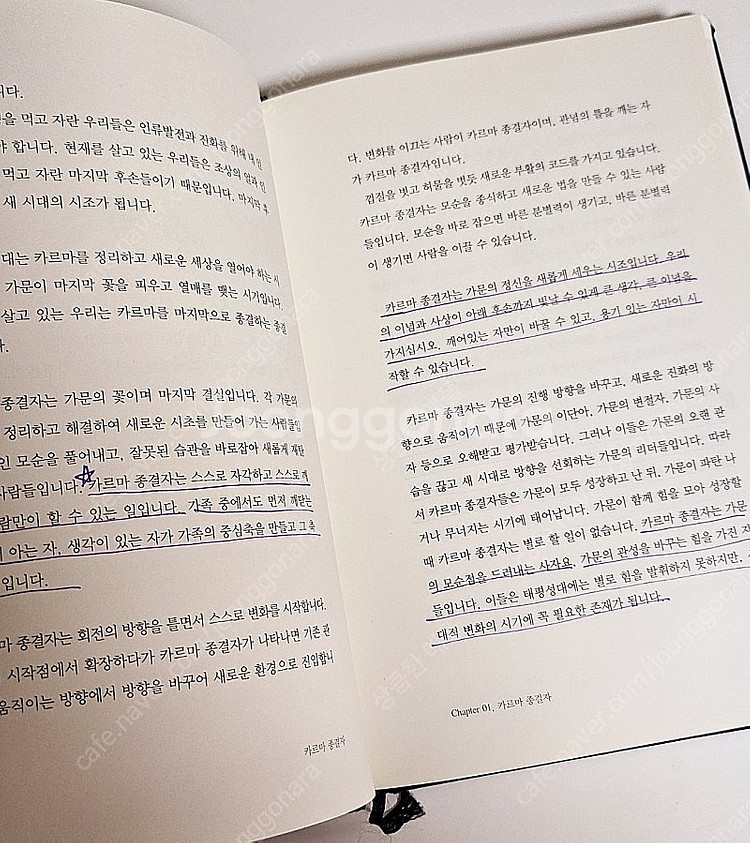 니다.
을 먹고 자란 우리들은 인류발전과 진화를 위해 내 인
야 합니다. 현재를 살고 있는 우리들은 조상의 얼과 인
먹고 자란 마지막 후손들이기 때문입니다. 마지막 후
새 시대의 시조가 됩니다.
대는 카르마를 정리하고 새로운 세상을 열어야 하는 시
가문이 마지막 꽃을 피우고 열매를 맺는 시기입니다.
살고 있는 우리는 카르마를 마지막으로 종결하는 종결
다.
종결자는 가문의 꽃이며 마지막 결실입니다. 각 가문의
정리하고 해결하여 새로운 시초를 만들어 가는 사람들입
인 모순을 풀어내고, 잘못된 습관을 바로잡아 새롭게 재탄
사람들입니다. 카르마 종결자는 스스로 자각하고 스스로 깨
람만이 할 수 있는 일입니다. 가족 중에서도 먼저 깨닫는
아는 자, 생각이 있는 자가 가족의 중심축을 만들고 그 축
입니다.
마 종결자는 회전의 방향을 틀면서 스스로 변화를 시작합니다.
시작점에서 확장하다가 카르마 종결자가 나타나면 기존 관
움직이는 방향에서 방향을 바꾸어 새로운 환경으로 진입합니
카르마 종결자
다. 변화를 이끄는 사람이 카르마 종결자이며, 관념의 틀을 깨는 자
가 카르마 종결자입니다.
껍질을 벗고 허물을 벗듯 새로운 부활의 코드를 가지고 있습니다.
카르마 종결자는 모순을 종식하고 새로운 법을 만들 수 있는 사람
들입니다. 모순을 바로 잡으면 바른 분별력이 생기고, 바른 분별력
이 생기면 사람을 이끌 수 있습니다.
카르마 종결자는 가문의 정신을 새롭게 세우는 시조입니다. 우리
의 이념과 사상이 아래 후손까지 빛날 수 있게 큰 생각, 큰 이념을
가지십시오. 깨어있는 자만이 바꿀 수 있고, 용기 있는 자만이 시
작할 수 있습니다.
카르마 종결자는 가문의 진행 방향을 바꾸고, 새로운 진화의 방
향으로 움직이기 때문에 가문의 이단아, 가문의 변절자, 가문의 사
자 등으로 오해받고 평가받습니다. 그러나 이들은 가문의 오랜 관
습을 끊고 새 시대로 방향을 선회하는 가문의 리더들입니다. 따라
서 카르마 종결자들은 가문이 모두 성장하고 난 뒤, 가문이 파탄 나
거나 무너지는 시기에 태어납니다. 가문이 함께 힘을 모아 성장할
때 카르마 종결자는 별로 할 일이 없습니다. 카르마 종결자는 가문
의 모순점을 드러내는 사자요, 가문의 관성을 바꾸는 힘을 가진 자
들입니다. 이들은 태평성대에는 별로 힘을 발휘하지 못하지만,
대적 변화의 시기에 꼭 필요한 존재가 됩니다.
Chapter 01. 카르마 종결자
joonggonara
cafe.naver.com/joonggonara